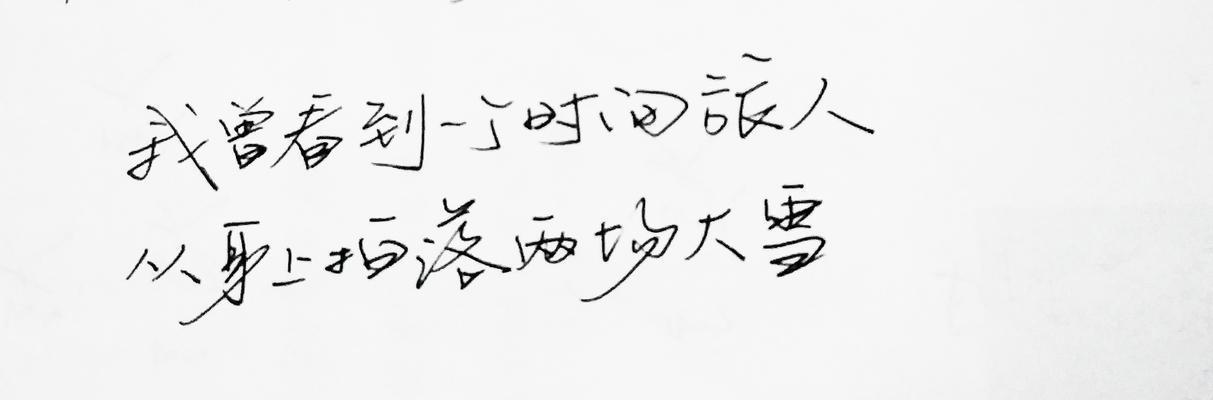 我曾看到一个时间旅人
从身上拍落两场大雪